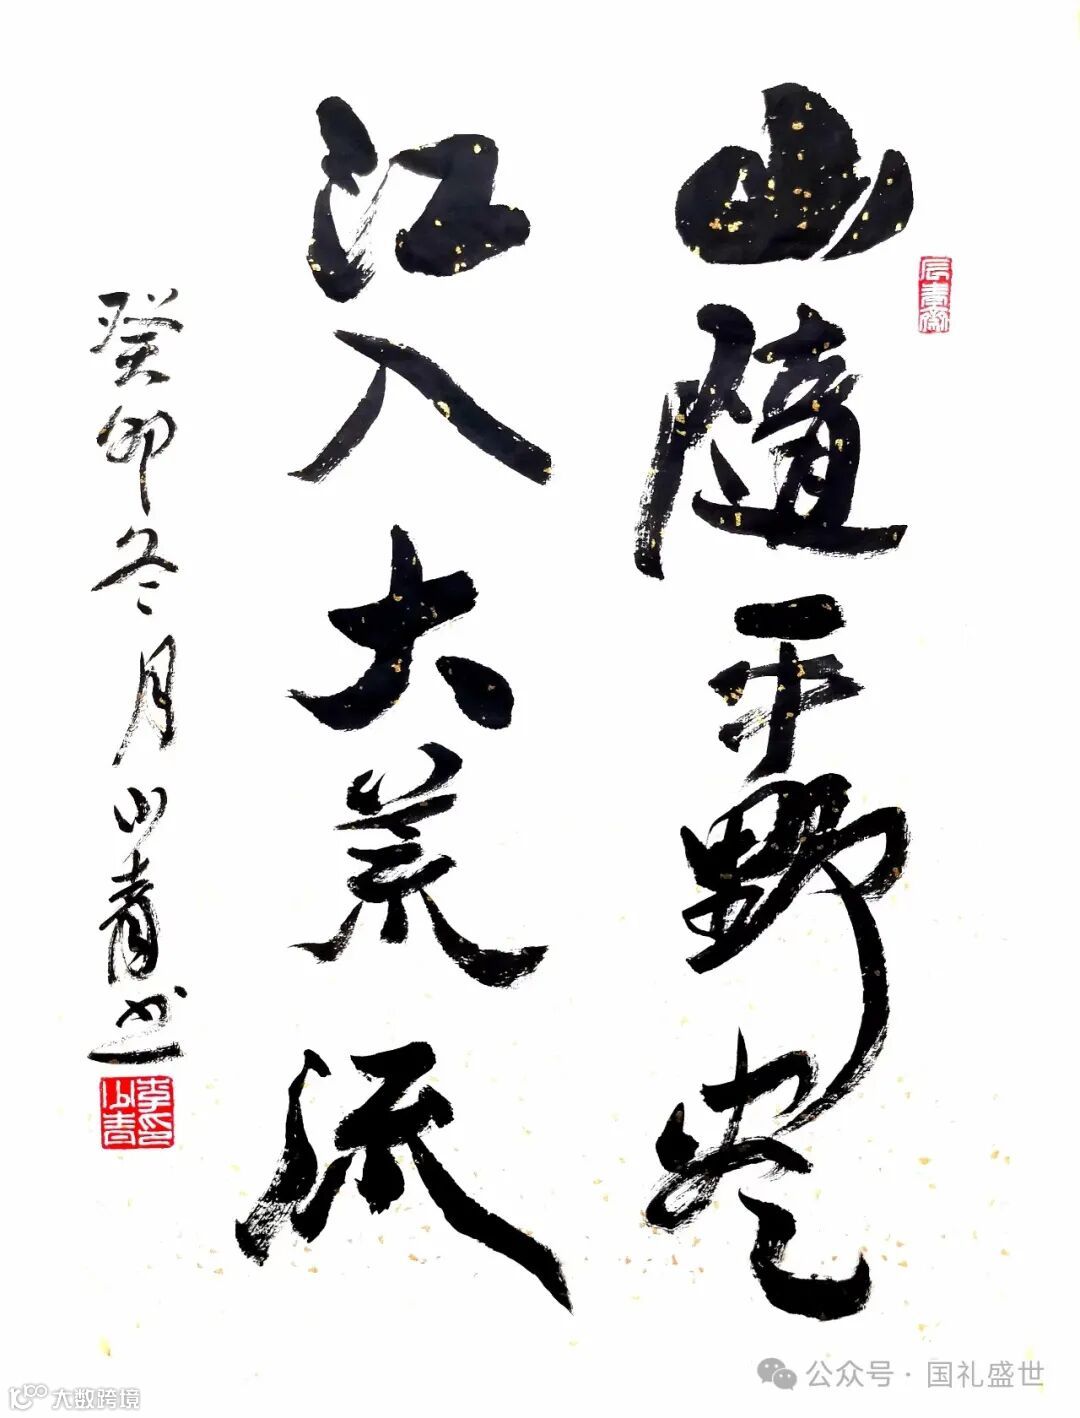 山隨平野尽
江入大荒流
癸卯冬月山青书
李印山青
公众号·国礼盛世
大数跨境